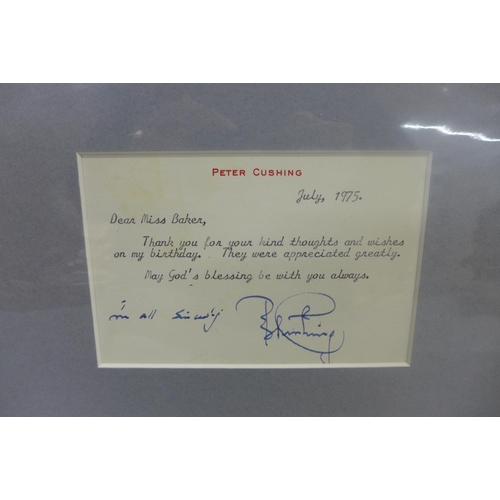 PETER CUSHING
July, 1975.
Dear Miss Baker,
Thank you for your kind thoughts and wishes
on my birthday. They were appreciated greatly.
May God's blessing be with you always.
in all sincerity
Peter Cushing